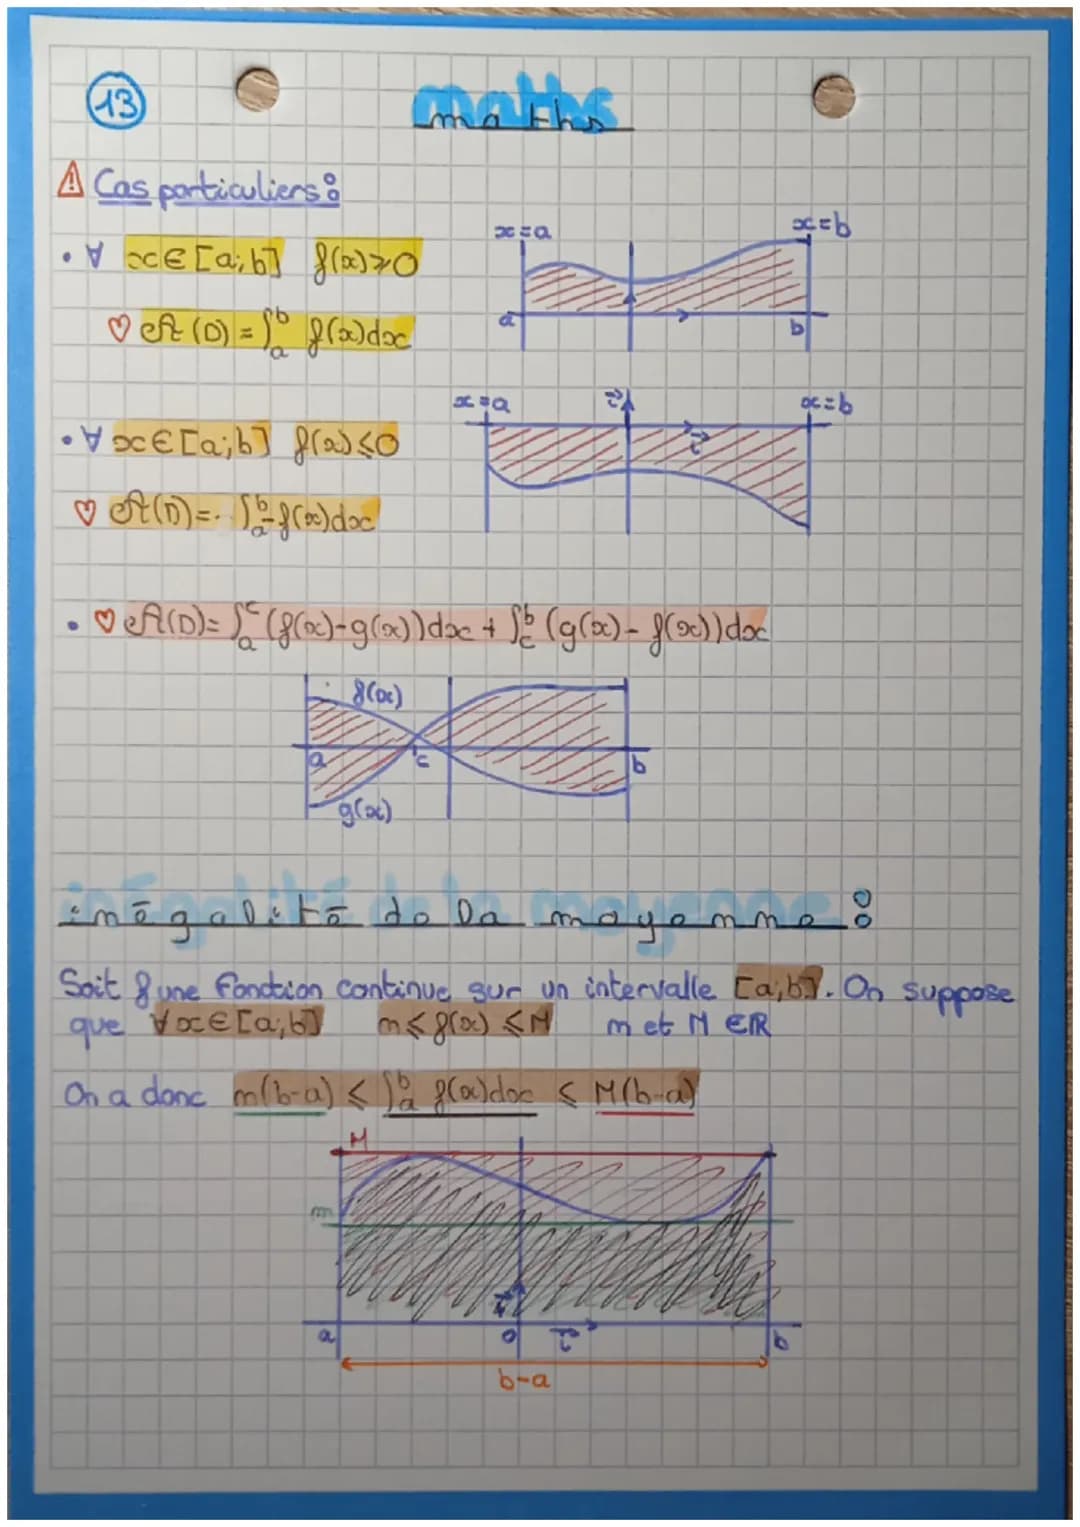 13
maths
⚠ Cas particuliers :
• ∀ x∈[a;b] f(x)≥0
♡ A(D) = ∫ₐᵇ f(x)dx
x=a
x=b
a
b
• ∀ x∈[a;b] f(x)≤0
♡ A(D) = ∫ₐᵇ -f(x)dx
x=a
x=b
• ♡ A(D) = ∫ₐᶜ (f(x)-g(x))dx + ∫꜀ᵇ (g(x)-f(x))dx
f(x)
a
c
b
g(x)
inégalité de la moyenne :
Soit f une fonction continue sur un intervalle [a;b]. On suppose
que ∀x∈[a;b] m≤f(x)≤M m et M ∈ℝ
On a donc m(b-a) ≤ ∫ₐᵇ f(x)dx ≤ M(b-a)
M
m
a
0
b
b-a